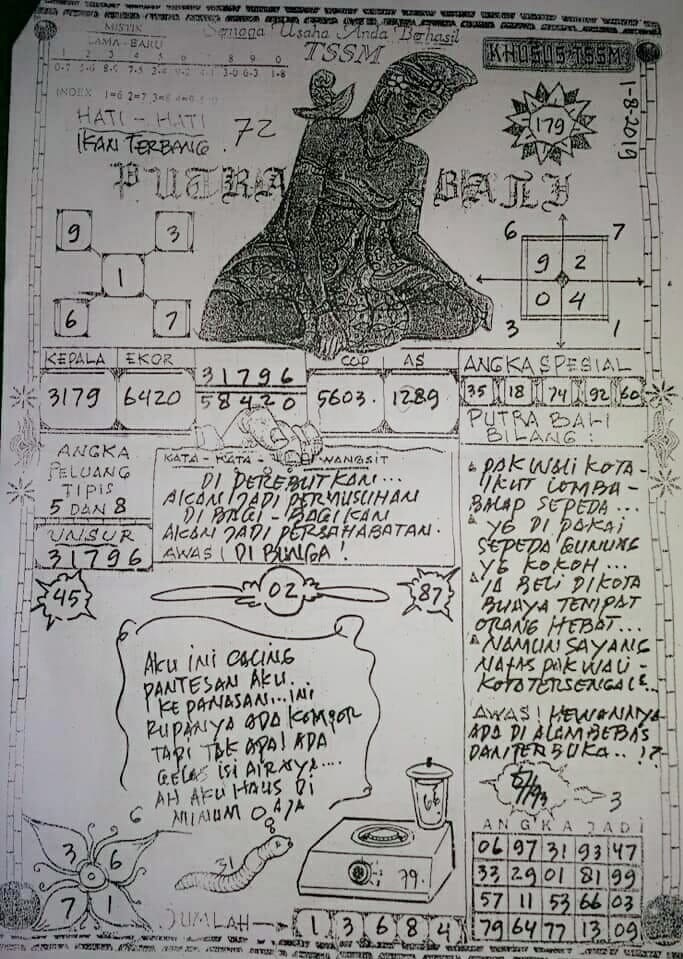 MISTIK
LAMA - BARU
Semoga Usaha Anda Berhasil
TSSM
KHUSUS TSSM
1-8-2019
1 2 3 4 5 6 8 9 0
0-7 8-5 3-0 6-3 1-8
INDEX 1=6 2=7
HATI - HATI
IKAN TERBANG . 72
179
PUTRA BALI
9 3
1
6 7
6 7
9 2
0 4
3 1
KEPALA EKOR
3179 6420
31796
58420
COP AS
5603. 1289
ANGKA SPESIAL
35 18 74 92 60
ANGKA
PELUANG
TIPIS
5 DAN 8
UNSUR
31796
KATA - KATA WANGSIT
DI PEREBUTKAN...
AKAN JADI PERMUSUHAN
DI BAGI - BAGIKAN
AKAN JADI PERSAHABATAN.
AWAS! DI BUNGA!
PUTRA BALI
BILANG:
PAK WALI KOTA-
IKUT LOMBA-
BALAP SEPEDA...
YG DI PAKAI
SEPEDA GUNUNG
YG KOKOH...
IA BELI DI KOTA
BUAYA TEMPAT
ORANG HEBAT...
NAMUN SAYANG
NAFAS PAK WALI-
KOTA TERSENGAL2..
AWAS! HEWANNYA
ADA DI ALAM BEBAS
DAN TERBUKA..!?
45
02
87
AKU INI CACING
PANTESAN AKU..
KEPANASAN...INI
RUPANYA ADA KOMPOR
TAPI TAK APA! ADA
GELAS ISI AIRNYA....
AH AKU HAUS DI
MINUM AJA
6
6
8
3
3 6
7 1
31
66
79.
ANGKA JADI
06 97 31 93 47
33 29 01 81 99
57 11 53 66 03
79 64 77 13 09
JUMLAH
1 3 6 8 4